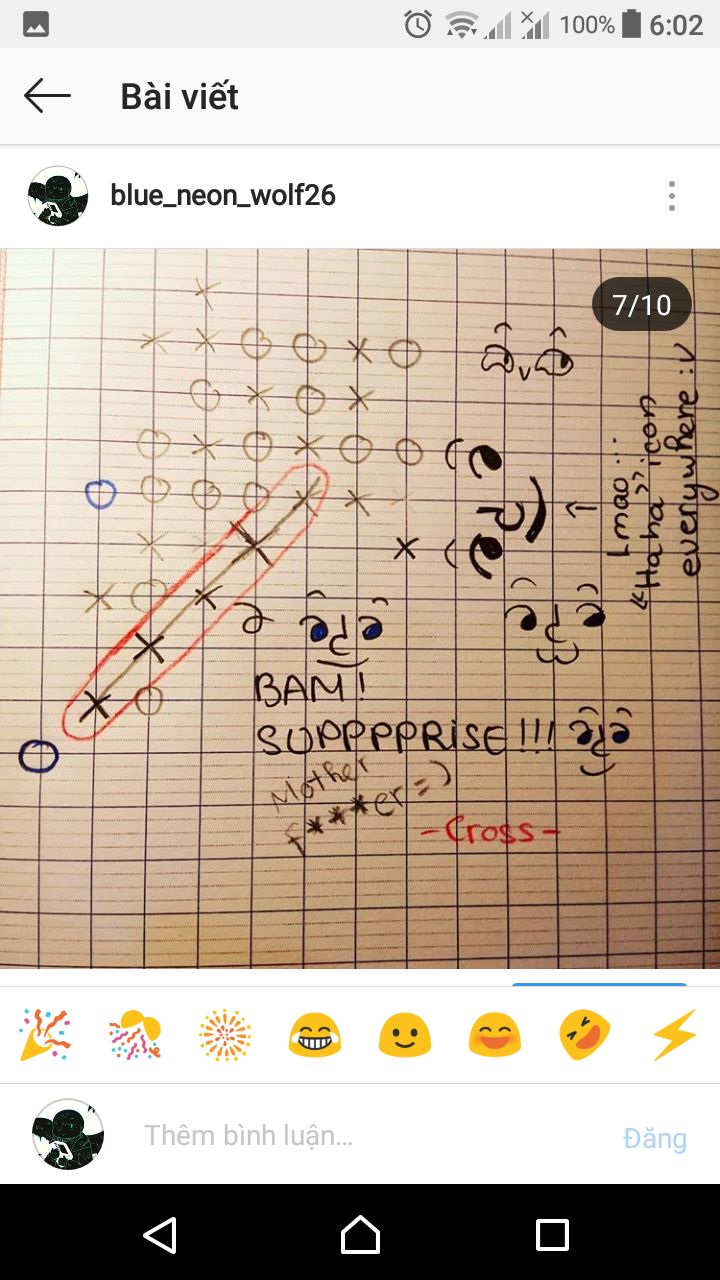 100% 6:02
Bài viết
blue_neon_wolf26
7/10
Lmao...
"Haha" icon
everywhere :v
BAM!
SUPPPPRISE!!!
Mother
f***er =)
-Cross-
Thêm bình luận...
Đăng